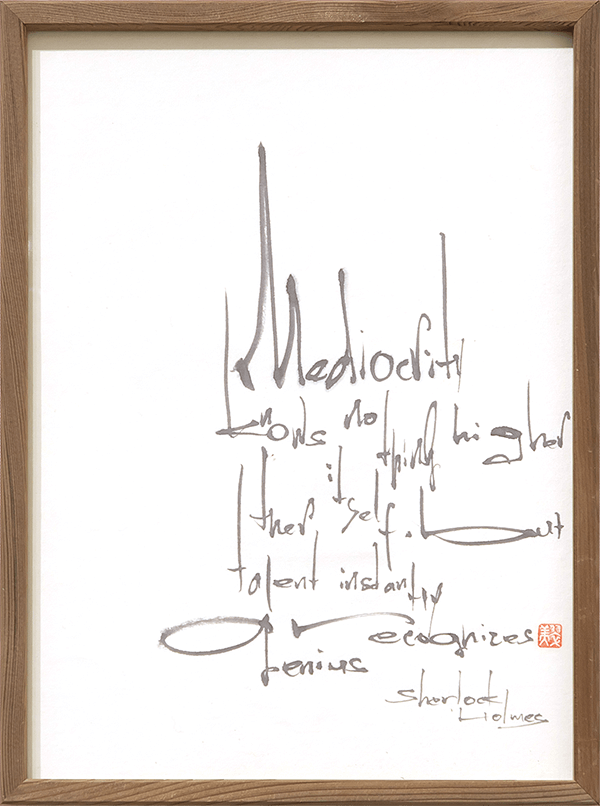 Mediocrity
knows nothing higher
itself. but
talent instantly
recognizes
genius
Sherlock
Holmes